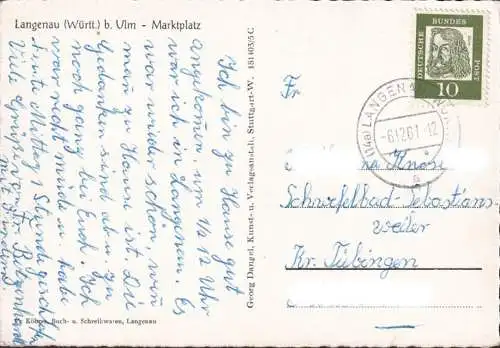 Langenau (Württ.) b. Ulm - Marktplatz
Ich bin zu Hause gut
angekommen. um ½ 12 Uhr
war ich in Langenau. Es
war wieder schön, wenn
man zu Hause ist. Die
Gedanken sind aber zu
noch ganz bei Euch. Ich
war recht müde u. habe
heute Mittag 1 Stunde geschlafen
Viele Grüße
mit
Georg Dangel, Kunst- u. Verlagsanstalt, Stuttgart-W. 151 403/5 C
Buch- u. Schreibwaren, Langenau
DEUTSCHE BUNDES POST
10
(14a) LANGENAU
-6.12.61.-12
a
Fr
Schwefelbad-Sebastians-
weiler
Kr. Tübingen